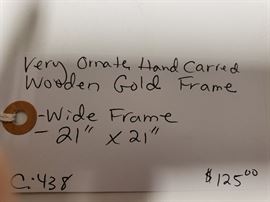 Very Ornate, Hand Carved
Wooden Gold Frame
- Wide Frame
- 21" x 21"
C:438 $125.00